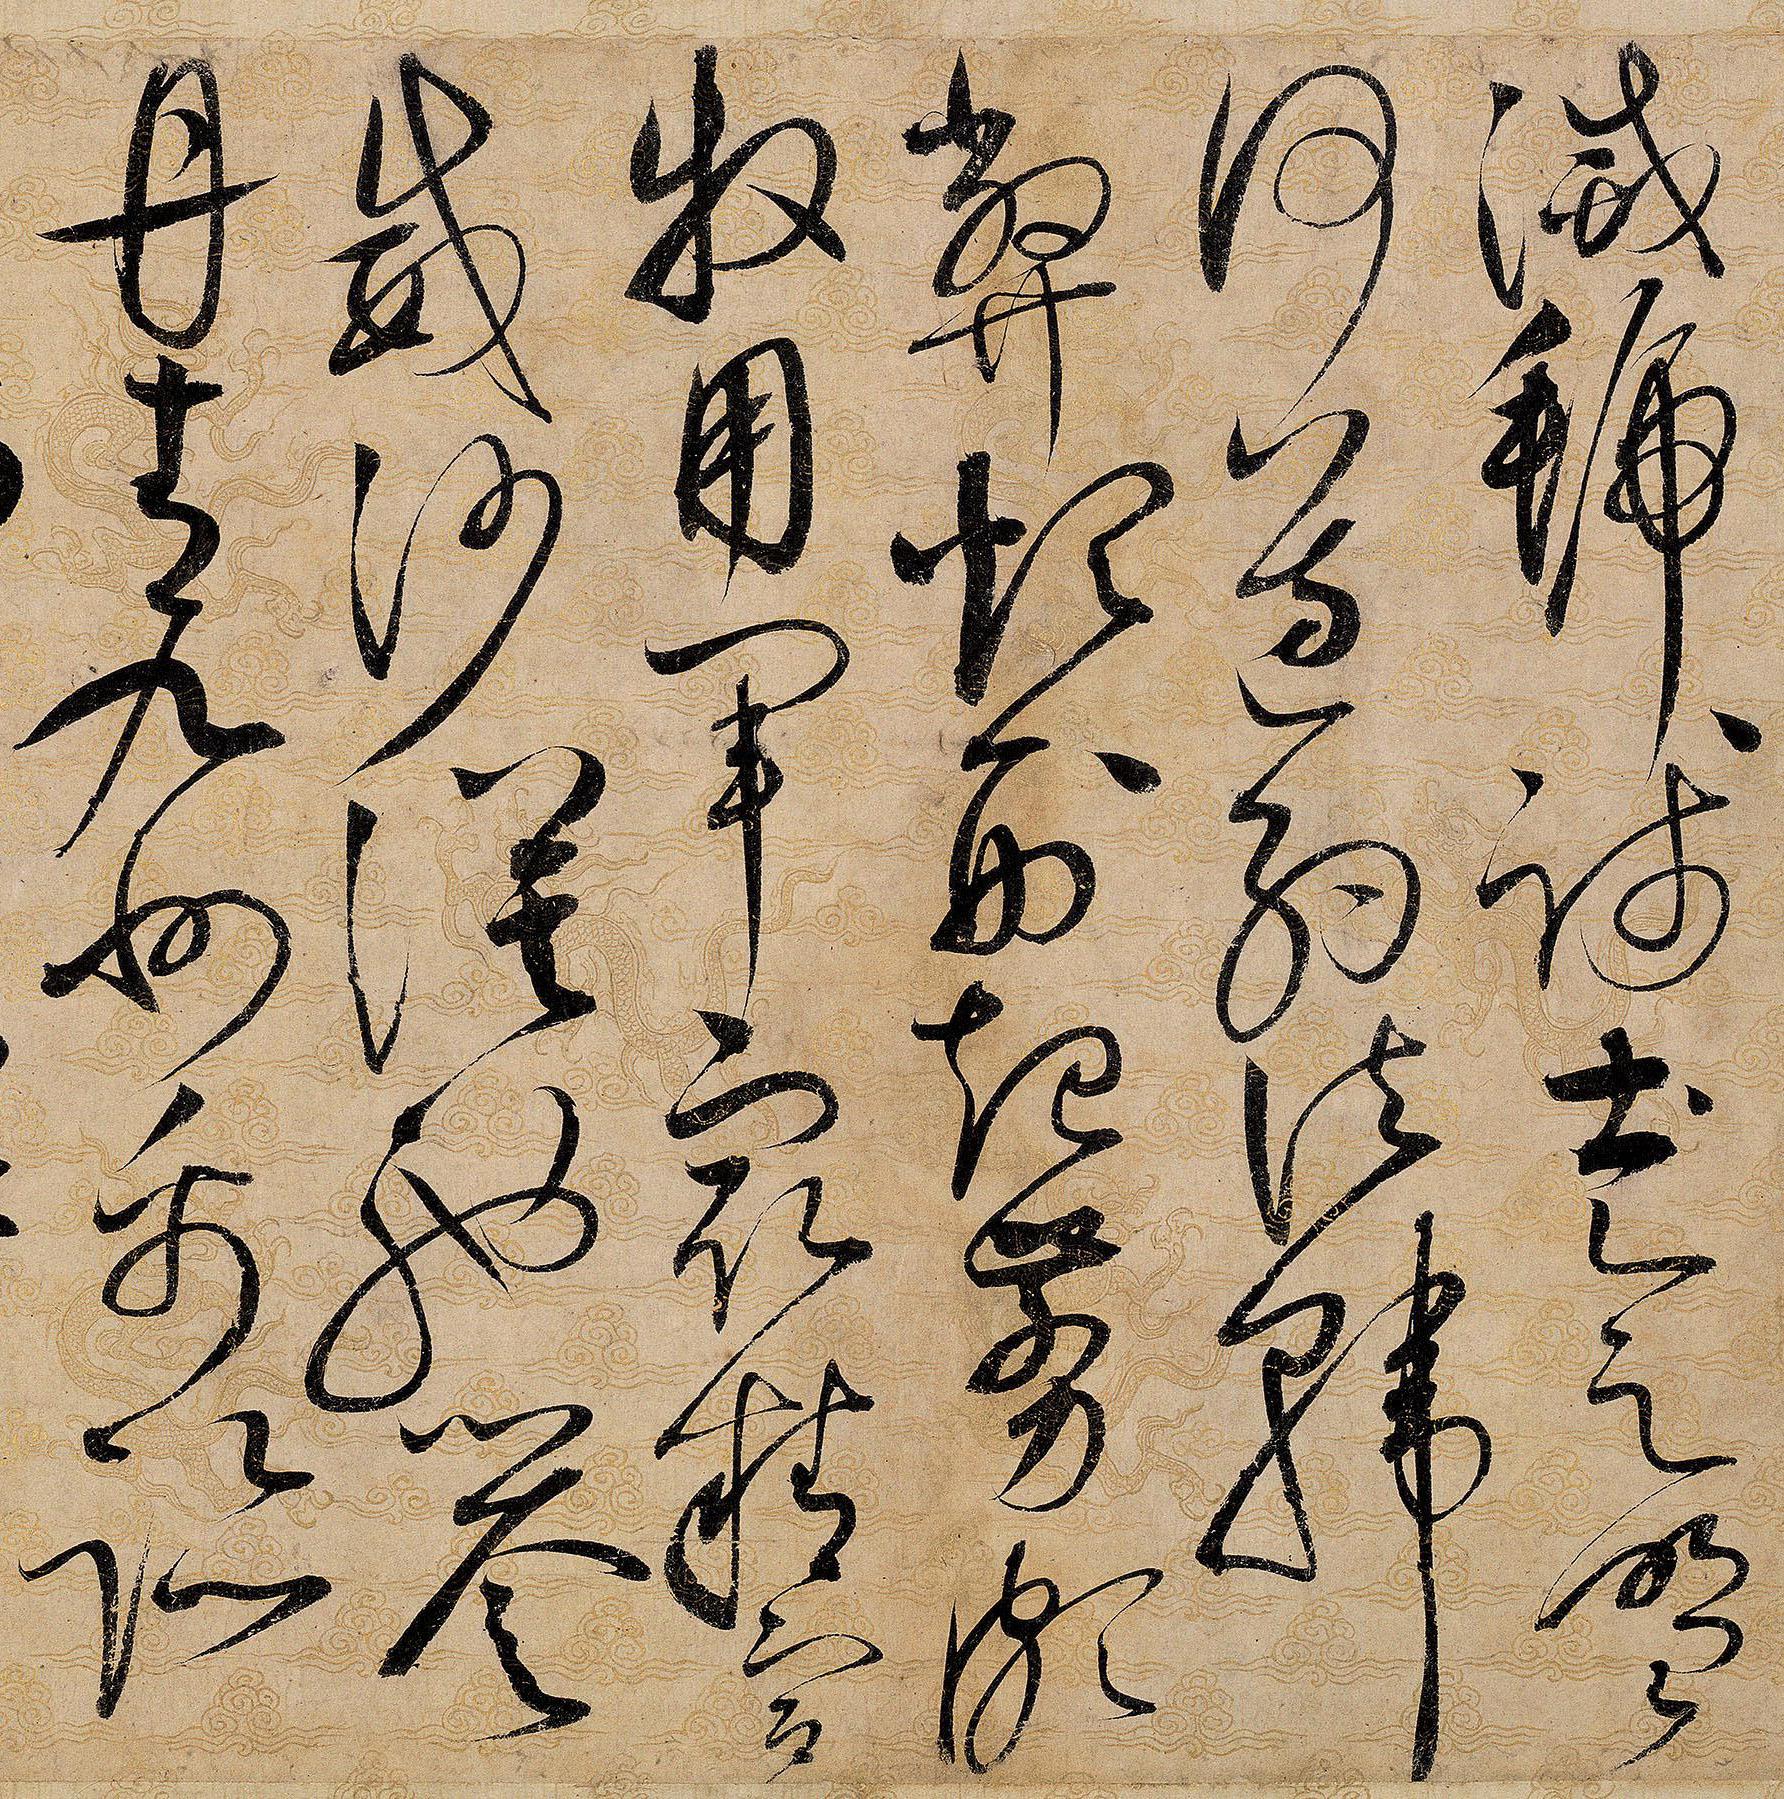 滅虢踐土會盟
何遵約法韓
弊煩刑起翦頗
牧用軍最精宣
威沙漠馳譽
丹青九州禹跡